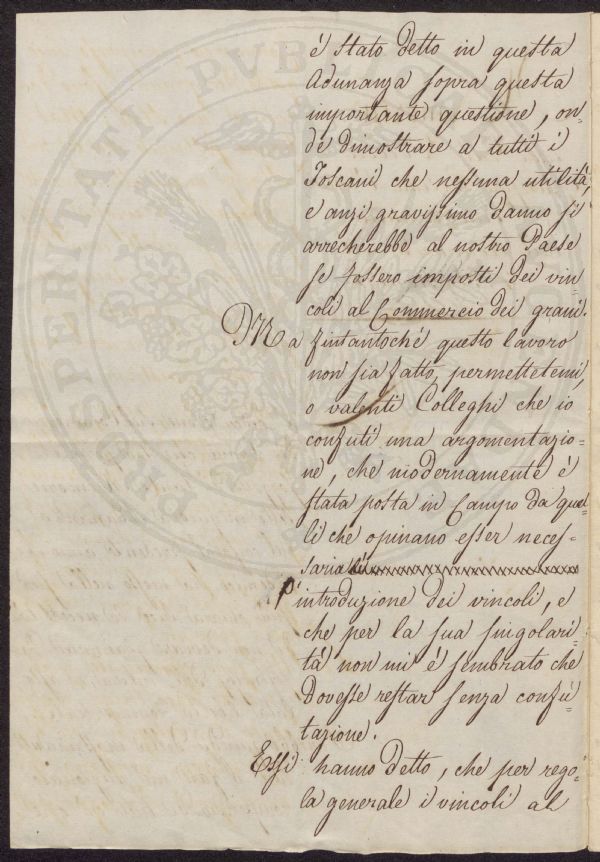 é stato detto in questa
Adunanza sopra questa
importante questione, on=
de dimostrare a tutti i
Toscani che nessuna utilità,
e anzi gravissimo danno si
arrecherebbe al nostro Paese
se fossero imposti dei vin=
coli al Commercio dei grani.
Ma fintantoché questo lavoro
non sia fatto, permettetemi,
o valenti Colleghi che io
confuti una argomentazio=
ne, che modernamente é
stata posta in Campo da quel=
li che opinano esser neces=
saria
l'introduzione dei vincoli, e
che per la sua singolari=
tá non mi é sembrato che
dovesse restar senza confu=
tazione.
Essi hanno detto, che per rego=
la generale i vincoli al
PROSPERITATI PVB